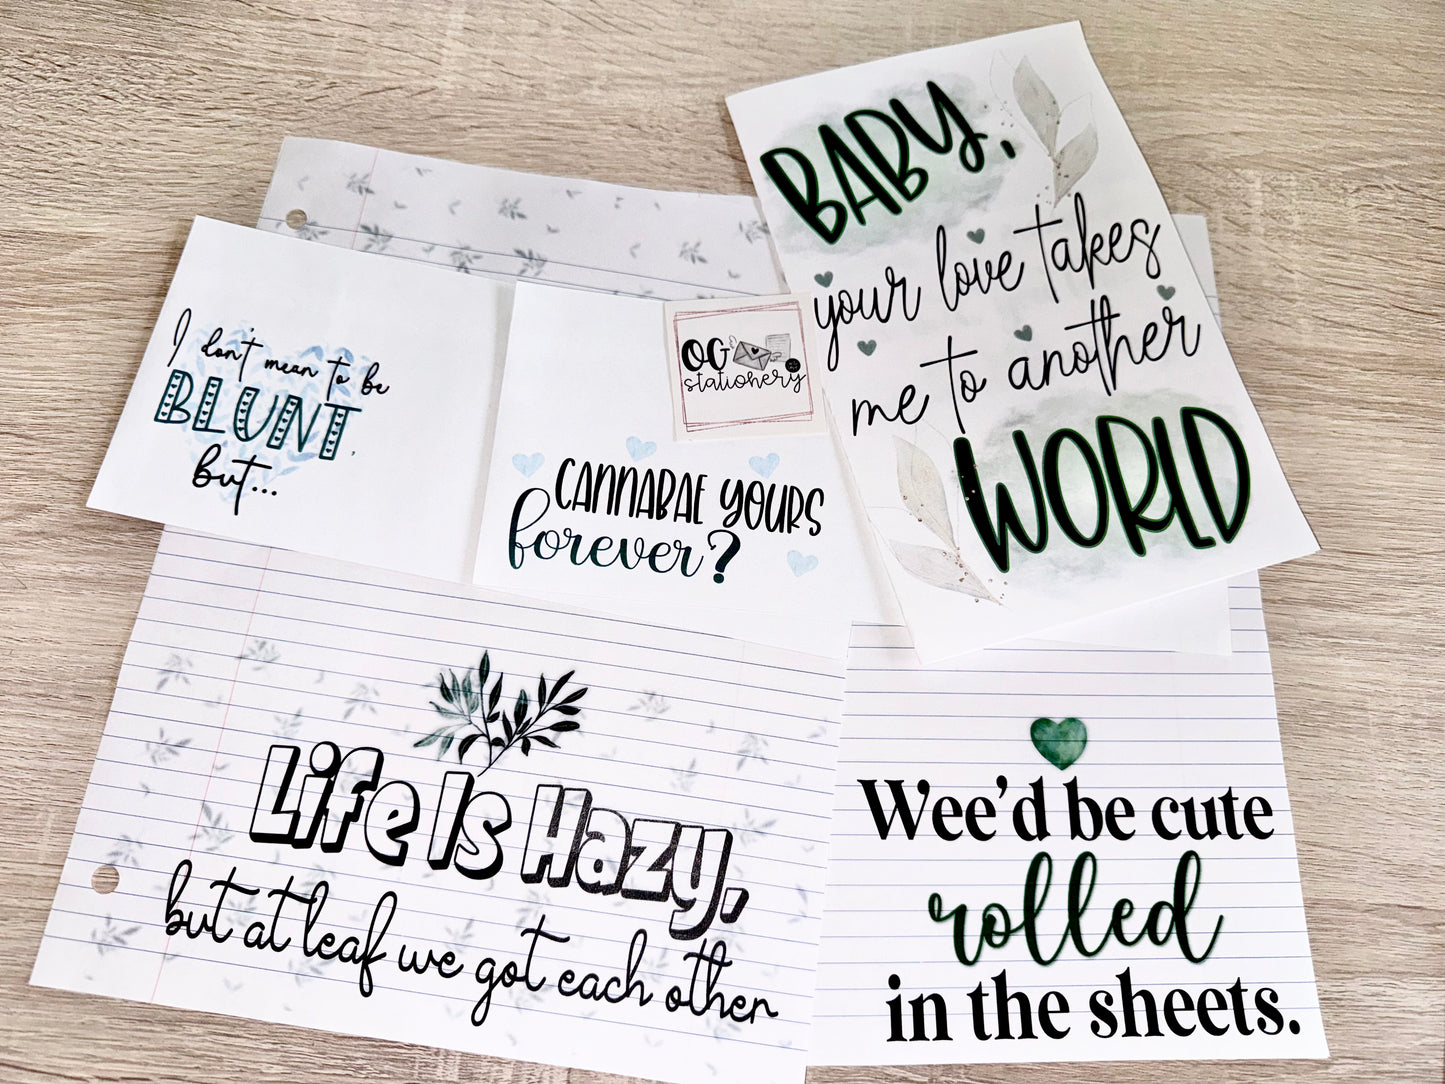 BABY,
your love takes
me to another
WORLD
I don't mean to be
BLUNT,
but...
OG
stationery
CANNABAE YOURS
forever?
Life Is Hazy,
but at leaf we got each other
Wee'd be cute
rolled
in the sheets.